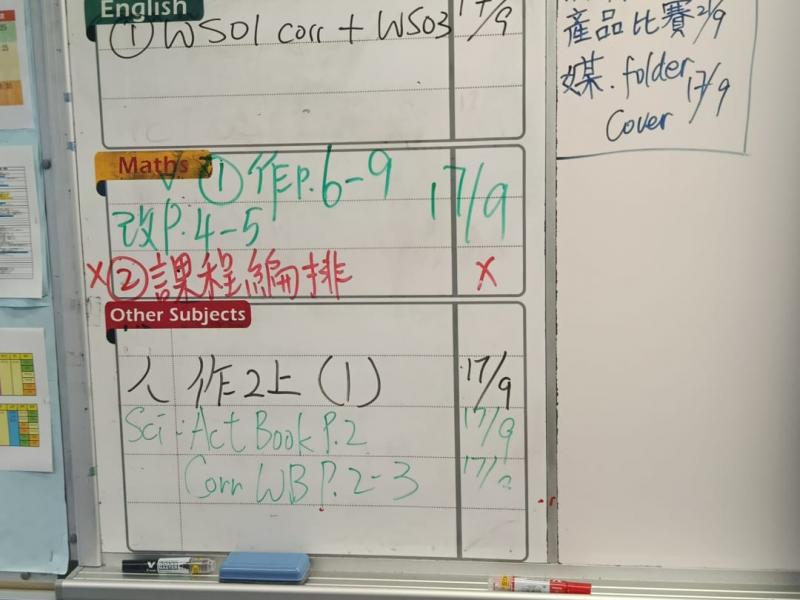 English
① WS01 corr + WS03 17/9
Maths
✓ ① 作P.6-9 17/9
改P.4-5
X ② 課程編排 X
Other Subjects
人 作2上 (1) 17/9
Sci: Act Book P.2 17/9
Corr WB P.2-3 17/9
產品比賽 2/9
媒. folder 17/9
Cover